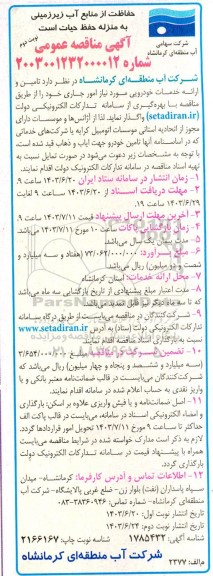 حفاظت از منابع آب زیرزمینی
به منزله حفظ حیات است
شرکت سهامی
آب منطقه‌ای کرمانشاه
آگهی مناقصه عمومی
نوبت دوم
شماره ۲۰۰۳۰۰۱۲۳۲۰۰۰۰۱۲
شرکت آب منطقه‌ای کرمانشاه در نظر دارد تامین و
ارائه خدمات خودرویی مورد نیاز امور جاری خود را از طریق
مناقصه با بهره‌گیری از سامانه تدارکات الکترونیکی دولت
(setadiran.ir) واگذار نماید، لذا از آژانس‌ها و موسسات دارای
مجوز از اتحادیه استانی موسسات اتومبیل کرایه یا شرکت‌های خدماتی
که در اساسنامه آنها تامین خودرو جهت ایاب و ذهاب قید شده است،
با توجه به مشخصات زیر دعوت می‌شود در صورت تمایل نسبت به
تهیه اسناد مناقصه در سامانه تدارکات الکترونیک دولت اقدام نمایند.
۱- زمان انتشار در سامانه ستاد ایران ۱۴۰۳/۶/۲۰ ساعت ۹.
۲- مهلت دریافت اسناد از ۱۴۰۳/۶/۲۰ ساعت ۹ لغایت
۱۴۰۳/۶/۲۹ ساعت ۱۹.
۳- آخرین مهلت ارسال پیشنهاد قیمت ۱۴۰۳/۷/۱۱ ساعت ۹.
۴- زمان بازگشایی پاکات ساعت ۱۰ مورخ ۱۴۰۳/۷/۱۱ می‌باشد.
۵- مدت پیمان یک سال می‌باشد.
۶- مبلغ برآورد: ۷۳/۰۶۲/۰۰۰/۰۰۰ (هفتاد و سه میلیارد و
شصت و دو میلیون) ریال می‌باشد.
۷- محل ارائه خدمات: استان کرمانشاه.
۸- مدت اعتبار مبلغ پیشنهادی از تاریخ بازگشایی سه ماه می‌باشد
که تا سه ماه دیگر نیز قابل تمدید می‌باشد.
۹- شرکت‌کنندگان در مناقصه می‌بایست از طریق درگاه سامانه
تدارکات الکترونیکی دولت (ستاد) به آدرس www.setadiran.ir
نسبت به بارگذاری اسناد مناقصه اقدام نمایند.
۱۰- تضمین شرکت در مناقصه: مبلغ ۳/۶۵۴/۰۰۰/۰۰۰
(سه میلیارد و ششصد و پنجاه و چهار میلیون) ریال می‌باشد که
شرکت‌کنندگان می‌بایست در قالب ضمانت‌نامه معتبر بانکی و یا
واریز نقدی به حساب اعلام شده در سامانه اقدام نمایند.
۱۱- اصل ضمانت‌نامه و یا فیش واریزی علاوه بر اسکن، بارگذاری
و امضاء الکترونیکی اسناد در سامانه، می‌بایست در قالب پاکت الف
حداکثر تا ساعت ۹ مورخ ۱۴۰۳/۷/۱۱ تحویل امور قراردادها گردد.
لازم به ذکر است مدارک خواسته شده در شرایط مناقصه می‌بایست
همراه با پیشنهاد قیمت در سامانه تدارکات الکترونیک دولت
بارگذاری گردد.
۱۲- اطلاعات تماس و آدرس کارفرما: کرمانشاه- میدان
سپاه پاسداران (نفت) بلوار زن- ضلع غربی پالایشگاه- شرکت آب
منطقه‌ای کرمانشاه- شماره تماس: ۳۸۳۶۰۹۴۶-۰۸۳
تاریخ انتشار نوبت اول: ۱۴۰۳/۶/۲۰
تاریخ انتشار نوبت دوم: ۱۴۰۳/۶/۲۴
شناسه آگهی: ۱۷۸۵۴۳۲ شناسه نوبت چاپ: ۲۱۶۶۱۶۷
شرکت آب منطقه‌ای کرمانشاه
م/الف: ۲۳۷۷